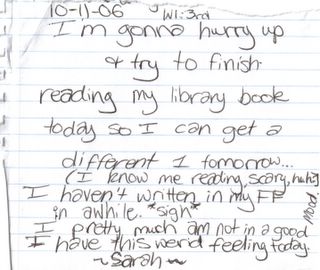 10-11-06 W1:3rd
I'm gonna hurry up
& try to finish
reading my library book
today so I can get a
different 1 tomorrow...
(I know me reading, scary, huh?)
I haven't written in my FF
in awhile. *sigh*
I pretty much am not in a good mood
I have this werid feeling today.
~Sarah~